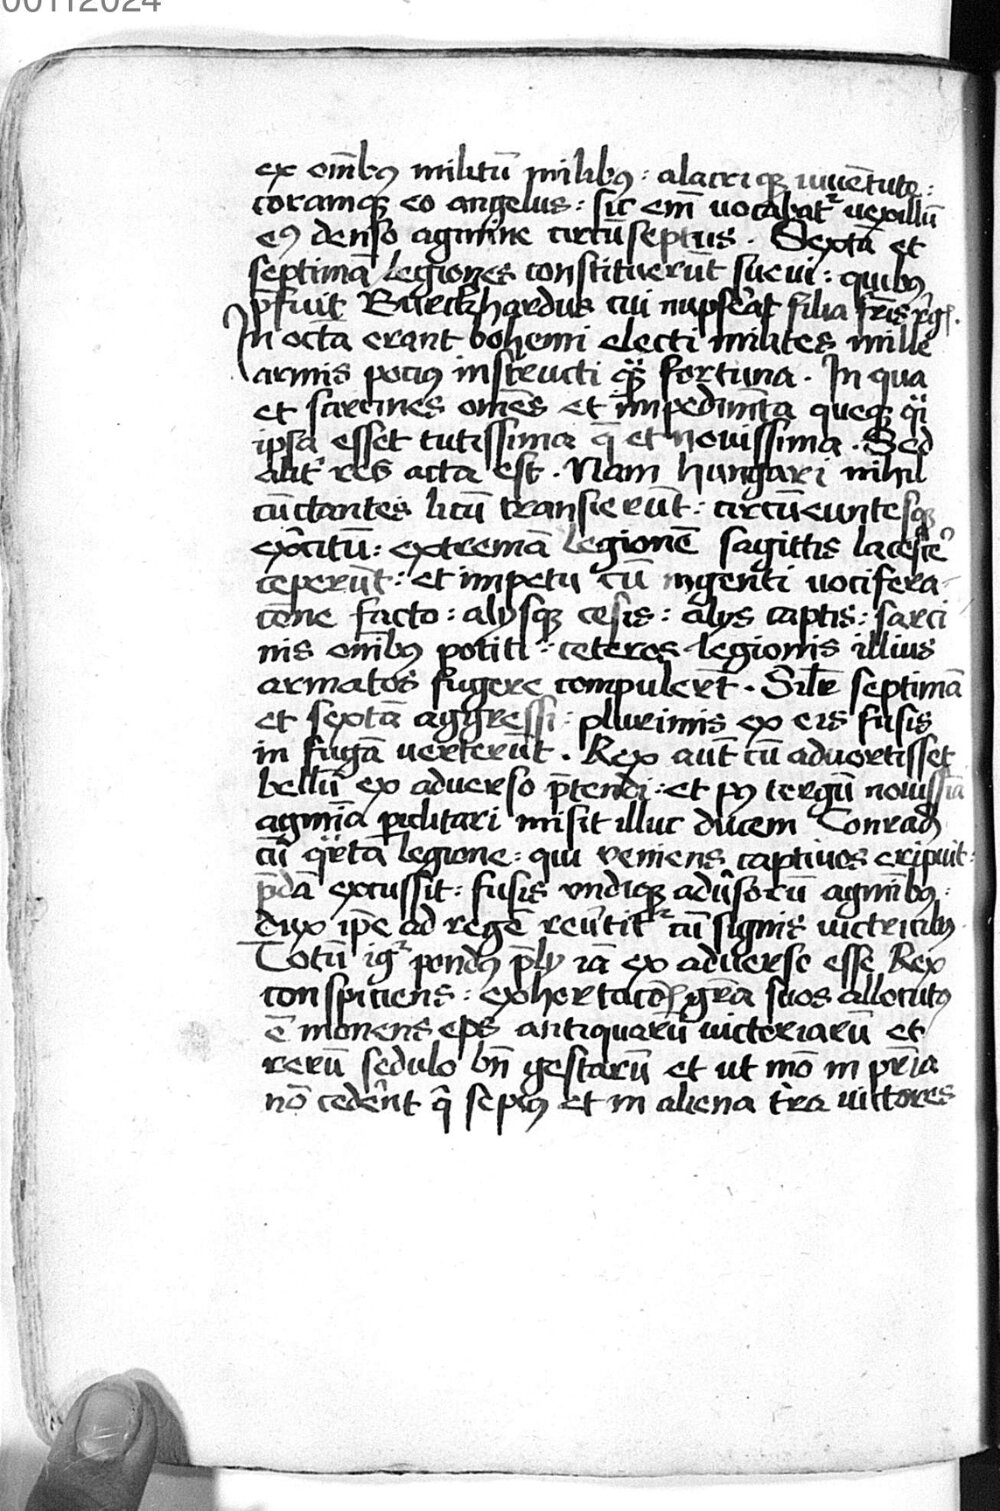 00112024
ex om̄bꝰ militū milibꝰ : alacriqꝫ iuuētute :
coramqꝫ eo angelus : sic em̄ vocabatᷣ vexillū
eꝰ denso agmine circūseptus . Sextā et
septimā legiones constituerūt sueui : quibꝰ
p̄fuit Burckhardus cui nupserat filia fr̄is
In octa erant bohemi electi milites mille
armis pociꝰ instructi fortuna . In qua
et sarcines om̄es et impedimta queqꝫ
ipsa esset tutissima q̄ et nouissima . Sed
alit̛ res acta est . Nam hungari nihil
cūctantes licū transierūt : circūeuntesqꝫ
exc̛itū : extremā legionē sagittis lacess̛e
ceperūt : et impetu cū ingenti vocifera-
cōne facto : alijsqꝫ cesis : alijs captis : sarci
nis om̄ibꝰ potiti : ceteros legionis illius
armatos fugere compulert̄ . Silr̄ septimā
et sextā aggressi : plurimis ex eis fusis
in fugā verterūt . Rex aūt cū aduertisset
bellū ex aduerso p̄tendi : et pꝰ tergū nouissīa
agmīa piclitari misit illuc ducem Conradū
cū q̈rta legione : qui veniens captiuos eripuit :
p̄dā excussit : fusis vndiqꝫ adūsorū agmībꝰ :
dux ip̄e ad regē reūtitᷣ cū signis victricibꝰ
Totū igᷣ pondꝰ p̄lij iā ex aduerso esse Rex
conspiciens : exhortacōis gr̄a suos allocutꝰ
ē monens eos antiquarū victoriarū et
rerū sedulo bn̄ gestarū et ut mō in pr̄ia
nō ceder̄nt q̄ sepiꝰ et in aliena tr̄a victores